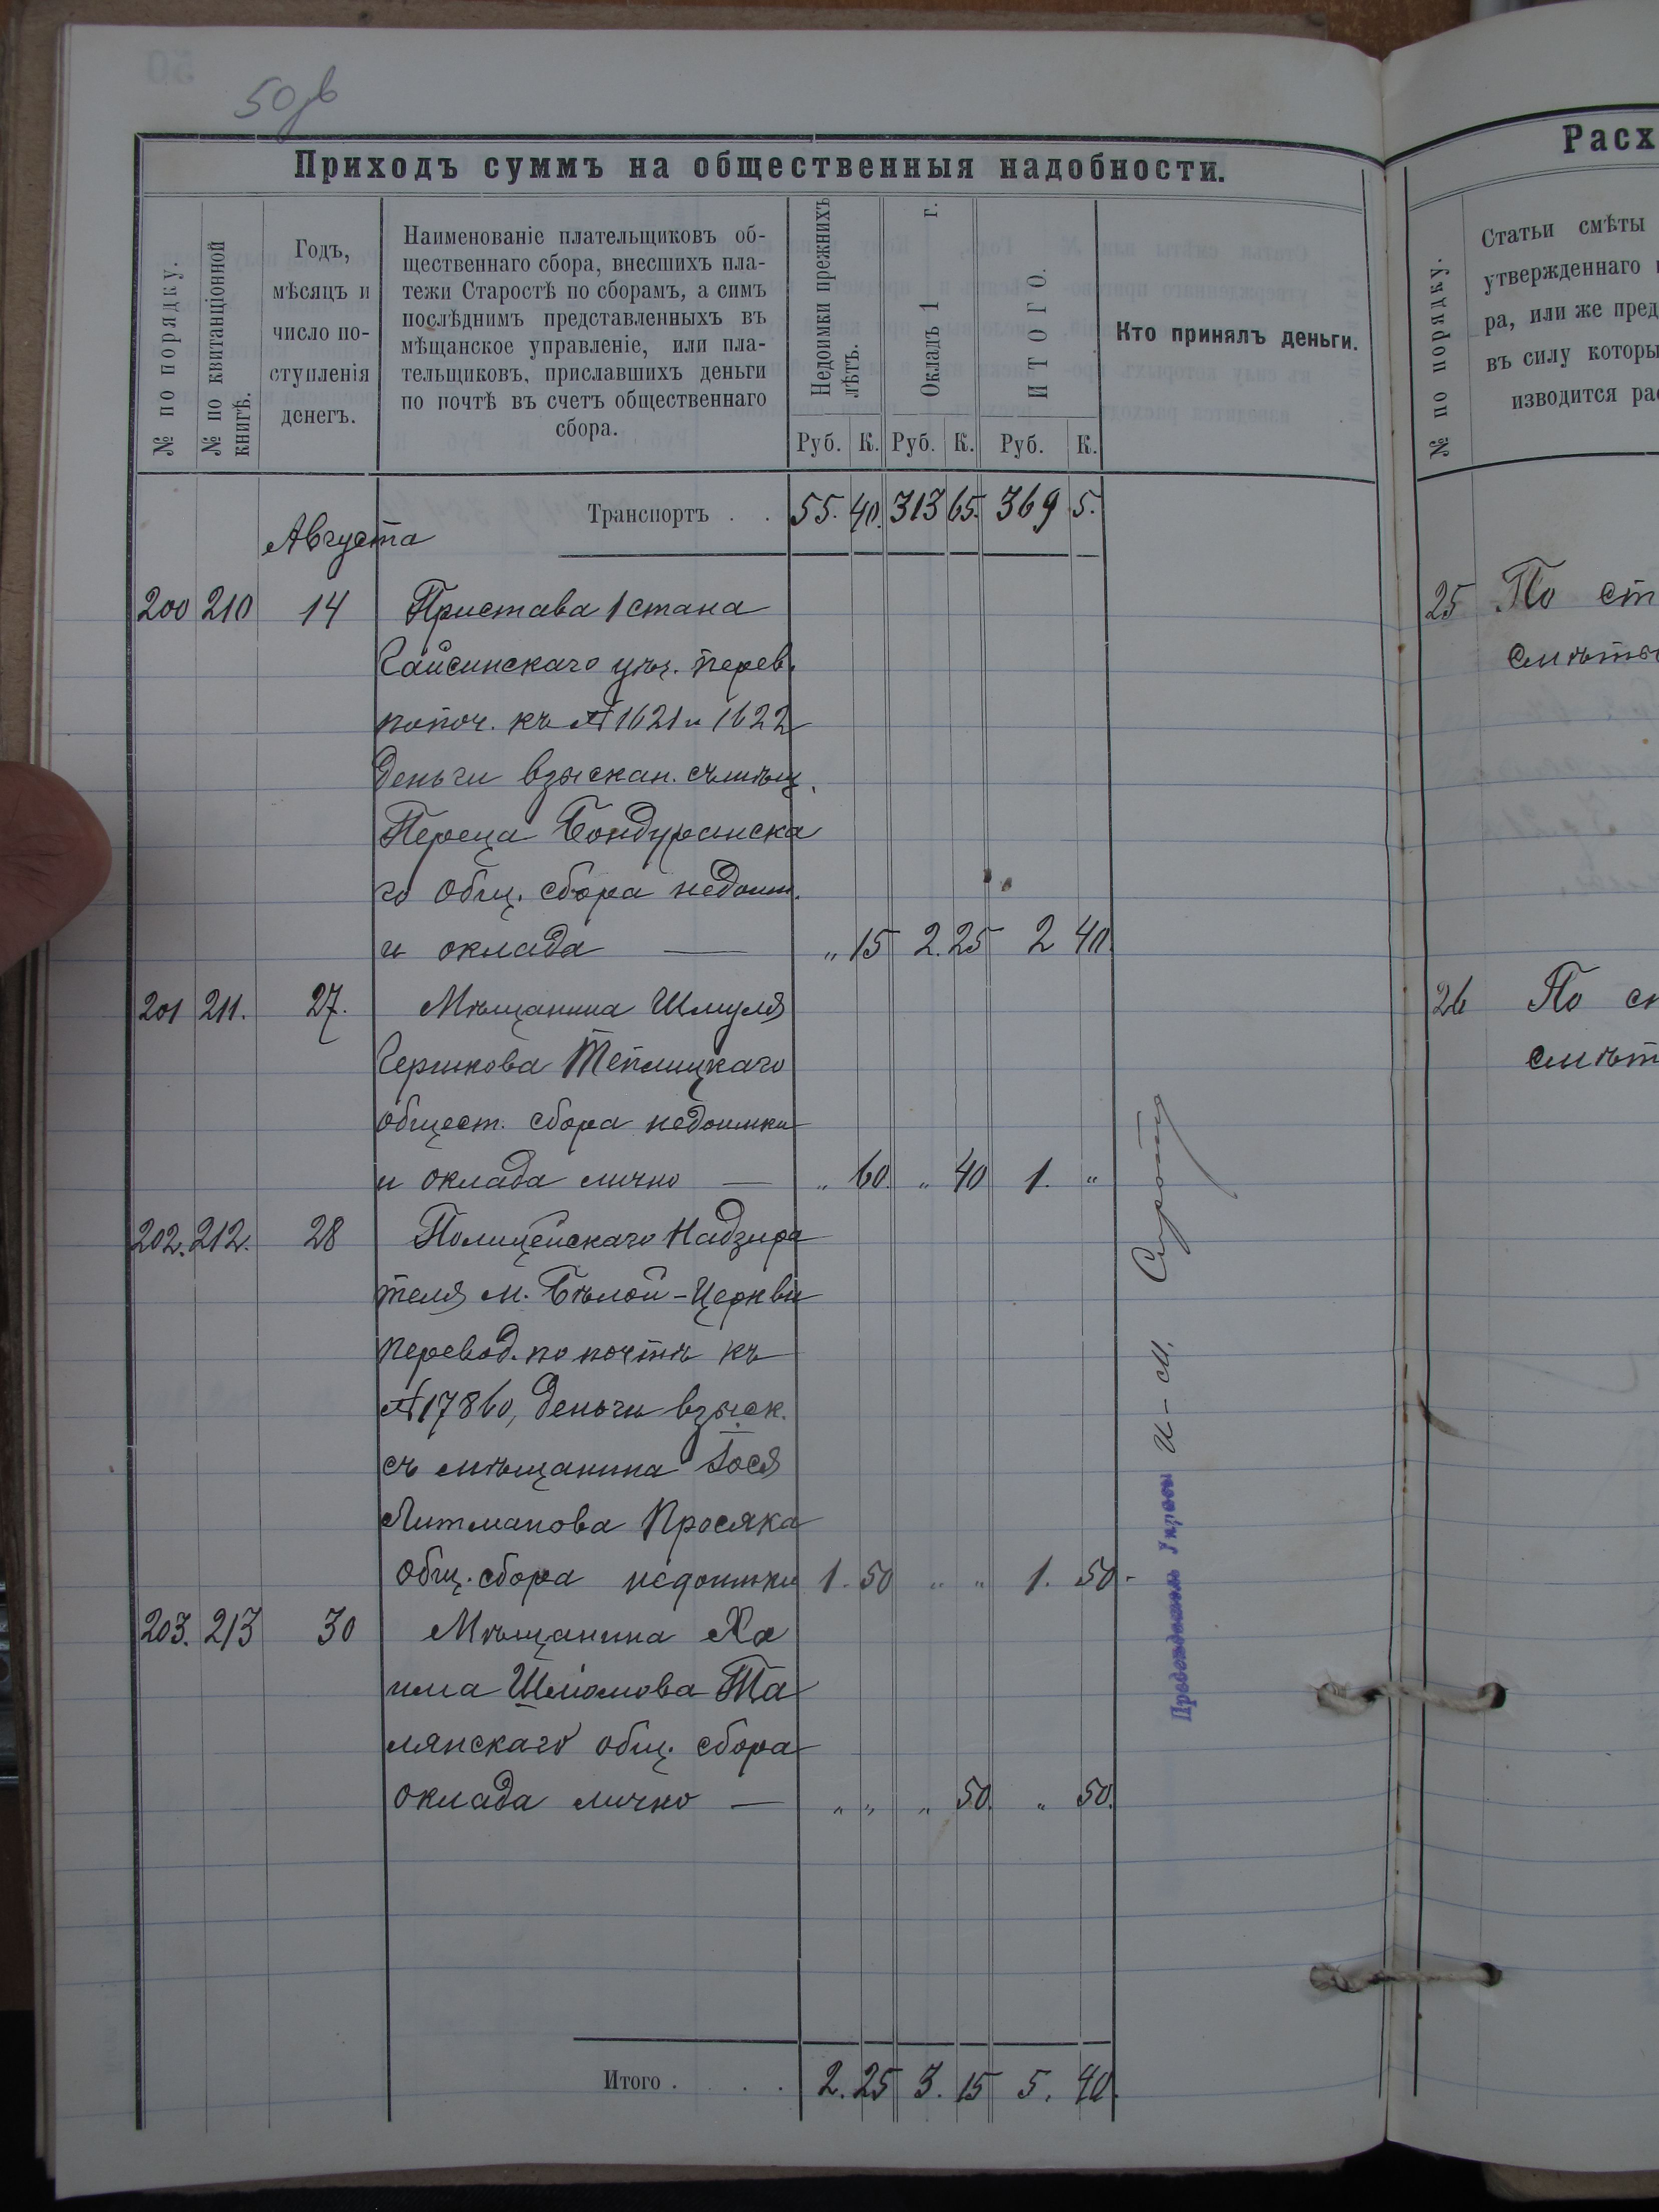 50 об
Приходъ суммъ на общественныя надобности.
№ по порядку.
№ по квитанціонной
книгѣ.
Годъ,
мѣсяцъ и
число по-
ступленія
денегъ.
Наименованіе плательщиковъ об-
щественнаго сбора, внесшихъ пла-
тежи Старостѣ по сборамъ, а симъ
послѣднимъ представленныхъ въ
мѣщанское управленіе, или пла-
тельщиковъ, приславшихъ деньги
по почтѣ въ счетъ общественнаго
сбора.
Недоимки прежнихъ
лѣтъ.
Окладъ 1 г.
ИТОГО.
Кто принялъ деньги.
Руб. К. Руб. К. Руб. К.
Транспортъ . . 55. 40. 313 65. 369 5.
Августа
200 210 14 Пристава 1 стана
Гайсинскаго уѣз. перев.
по поч. къ № 1621 и 1622
деньги взыскан. съ мѣщ.
Переца Бондуранска
го общ. сбора недоим.
и оклада — „ 15 2. 25 2 40.
201 211. 27. Мѣщанина Шмуля
Гершкова Теплицкаго
общест. сбора недоимки
и оклада лично — „ 60. „ 40 1. „
202. 212. 28 Полицейскаго Надзира
теля м. Бѣлой-Церкви
перевод. по почтѣ къ
№ 17860, деньги взыск.
съ мѣщанина Іося
Литманова Просяка
общ. сбора недоимки 1. 50 „ „ 1. 50.
203. 213 30 Мѣщанина Ха
има Шліомова Та
лянскаго общ. сбора
оклада лично — „ „ „ 50. „ 50.
Итого . . . . 2. 25 3. 15 5. 40.
Расх
№ по порядку.
Статьи смѣты
утвержденнаго
ра, или же пред
въ силу которы
изводится рас
25 По ст
смѣты
26 По ст
смѣт